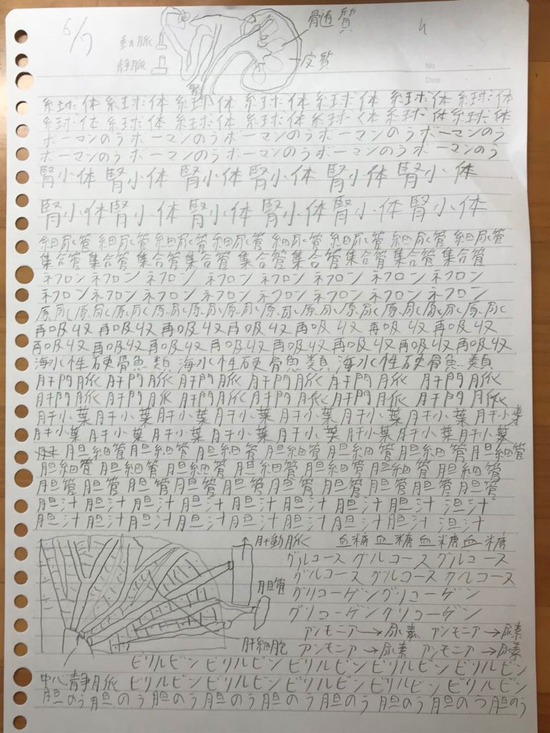 6/7
動脈
静脈
髄質
皮質
No.
Date
糸球体 糸球体 糸球体 糸球体 糸球体 糸球体 糸球体
糸球体 糸球体 糸球体 糸球体 糸球体 糸球体 糸球体
ボーマンのう ボーマンのう ボーマンのう ボーマンのう
ボーマンのう ボーマンのう ボーマンのう ボーマンのう
腎小体 腎小体 腎小体 腎小体 腎小体 腎小体
腎小体 腎小体 腎小体 腎小体 腎小体 腎小体
細尿管 細尿管 細尿管 細尿管 細尿管 細尿管 細尿管
集合管 集合管 集合管 集合管 集合管 集合管 集合管
ネフロン ネフロン ネフロン ネフロン ネフロン ネフロン
ネフロン ネフロン ネフロン ネフロン ネフロン ネフロン
原尿 原尿 原尿 原尿 原尿 原尿 原尿 原尿 原尿 原尿
再吸収 再吸収 再吸収 再吸収 再吸収 再吸収
再吸収 再吸収 再吸収 再吸収 再吸収 再吸収
海水性硬骨魚類 海水性硬骨魚類 海水性硬骨魚類
肝門脈 肝門脈 肝門脈 肝門脈 肝門脈 肝門脈
肝門脈 肝門脈 肝門脈 肝門脈 肝門脈 肝門脈
肝小葉 肝小葉 肝小葉 肝小葉 肝小葉 肝小葉 肝小葉
肝小葉 肝小葉 肝小葉 肝小葉 肝小葉 肝小葉
胆細管 胆細管 胆細管 胆細管 胆細管 胆細管
胆細管 胆細管 胆細管 胆細管 胆細管 胆細管
胆管 胆管 胆管 胆管 胆管 胆管 胆管 胆管 胆管
胆汁 胆汁 胆汁 胆汁 胆汁 胆汁 胆汁 胆汁
胆汁 胆汁 胆汁 胆汁 胆汁 胆汁 胆汁 胆汁
肝動脈 血糖 血糖 血糖 血糖
グルコース グルコース グルコース
胆管 グルコース グルコース グルコース
グリコーゲン グリコーゲン
グリコーゲン グリコーゲン
アンモニア→尿素 アンモニア→尿素
肝細胞 アンモニア→尿素 アンモニア→尿素
ビリルビン ビリルビン ビリルビン ビリルビン ビリルビン
中心静脈 ビリルビン ビリルビン ビリルビン ビリルビン
胆のう 胆のう 胆のう 胆のう 胆のう 胆のう 胆のう